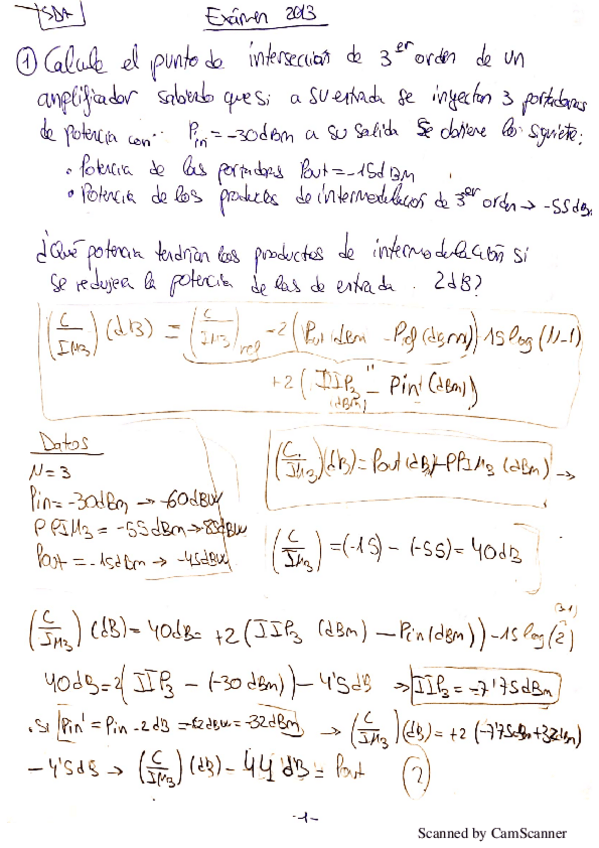 SDA Exámen 2013
① Calcule el punto de intersección de 3er orden de un
amplificador sabiendo que si a su entrada se inyectan 3 portadoras
de potencia con Pin = -30dBm a su salida se obtiene lo siguiente:
• Potencia de las portadoras Pout = -15dBm
• Potencia de los productos de intermodulación de 3er orden → -55dBm
¿Qué potencia tendrían los productos de intermodulación si
se redujera la potencia de las de entrada 2dB?
(C/IM3)(dB) = (C/IM3)ref -2(Pout dBm - Pref(dBm)) 15log(N-1)
+2(IIP3(dBm) - Pin(dBm))
Datos
N = 3
Pin = -30dBm → -60dBW
PPIM3 = -55dBm → 85dBW
Pout = -15dBm → -45dBW
(C/IM3)(dB) = Pout(dB) - PPIM3(dBm) →
(C/IM3) = (-15) - (-55) = 40dB
(C/IM3)(dB) = 40dB = +2(IIP3(dBm) - Pin(dBm)) - 15log(2) (3-1)
40dB = 2(IIP3 - (-30dBm)) - 4'5dB → IIP3 = -7'75dBm
. Si Pin' = Pin - 2dB = -62dBW = -32dBm → (C/IM3)(dB) = +2(-7'75dBm+32dBm)
- 4'5dB → (C/IM3)(dB) - 44dB = Pout (?)
-1-
Scanned by CamScanner